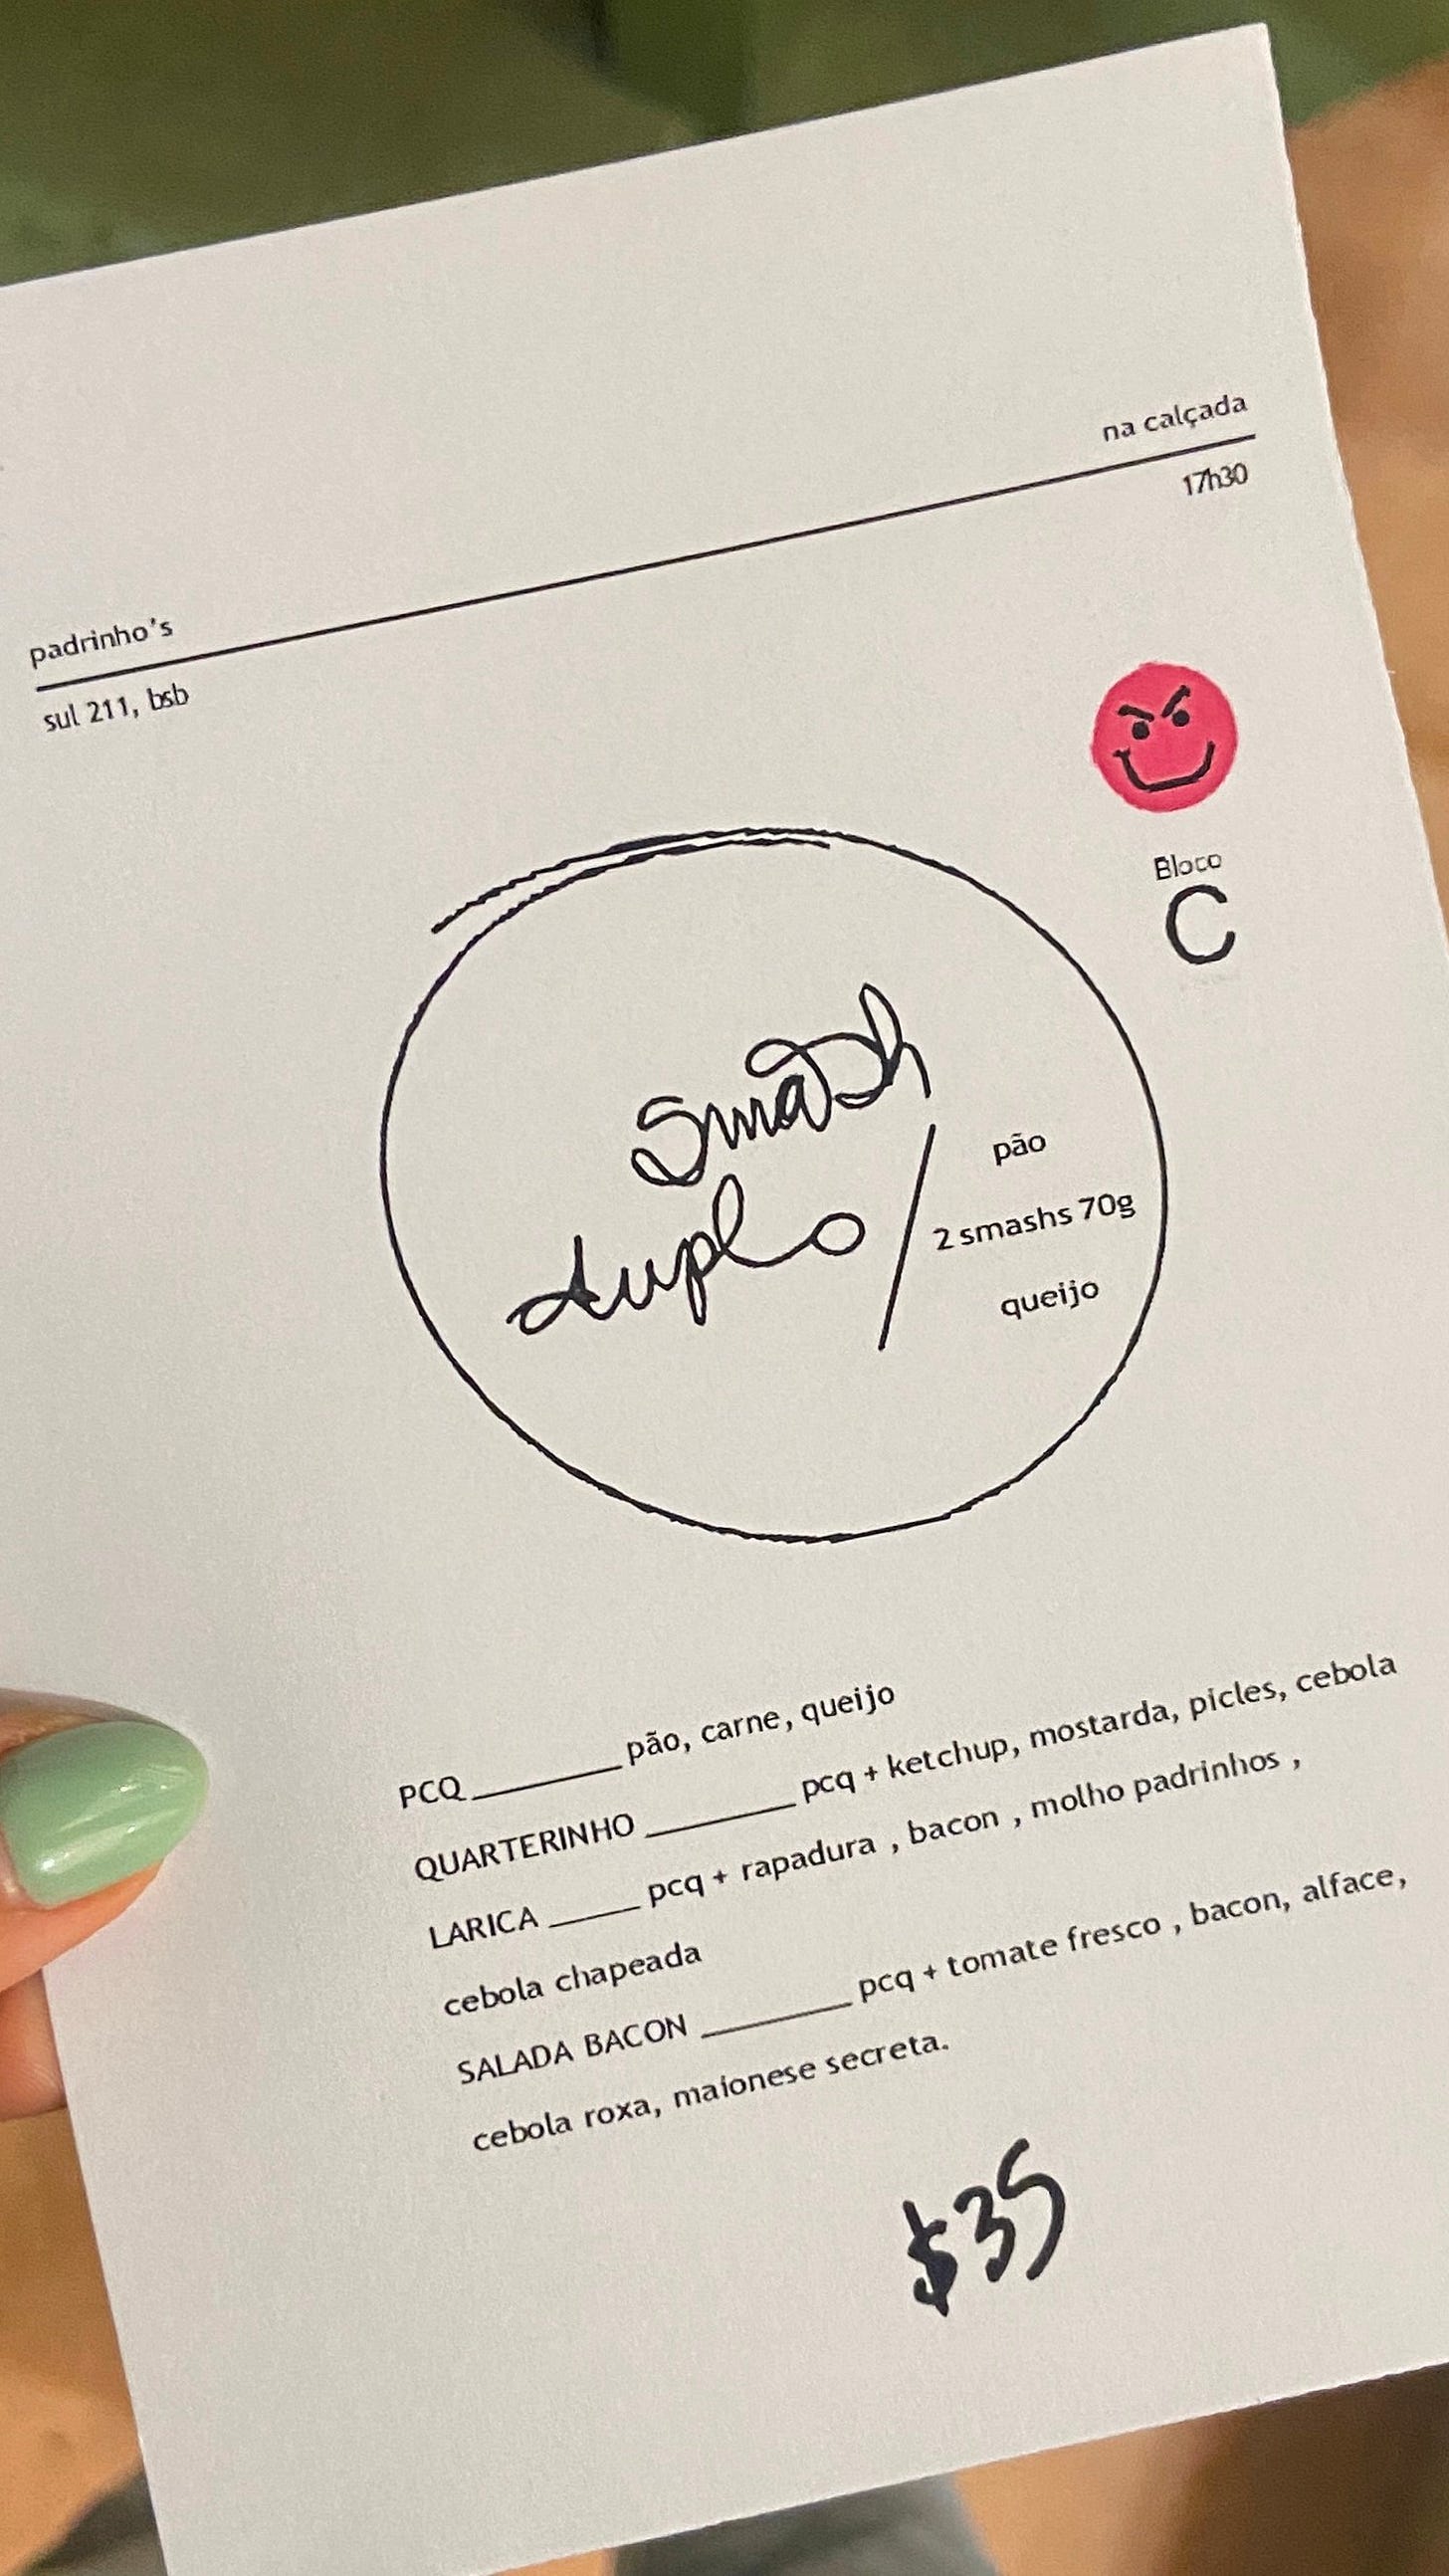 na calçada
17h30
padrinho's
sul 211, bsb
Bloco
C
Smash
duplo
pão
2 smashs 70g
queijo
PCQ ________ pão, carne, queijo
QUARTERINHO ________ pcq + ketchup, mostarda, picles, cebola
LARICA _____ pcq + rapadura , bacon , molho padrinhos ,
cebola chapeada
SALADA BACON ________ pcq + tomate fresco , bacon, alface,
cebola roxa, maionese secreta.
$35